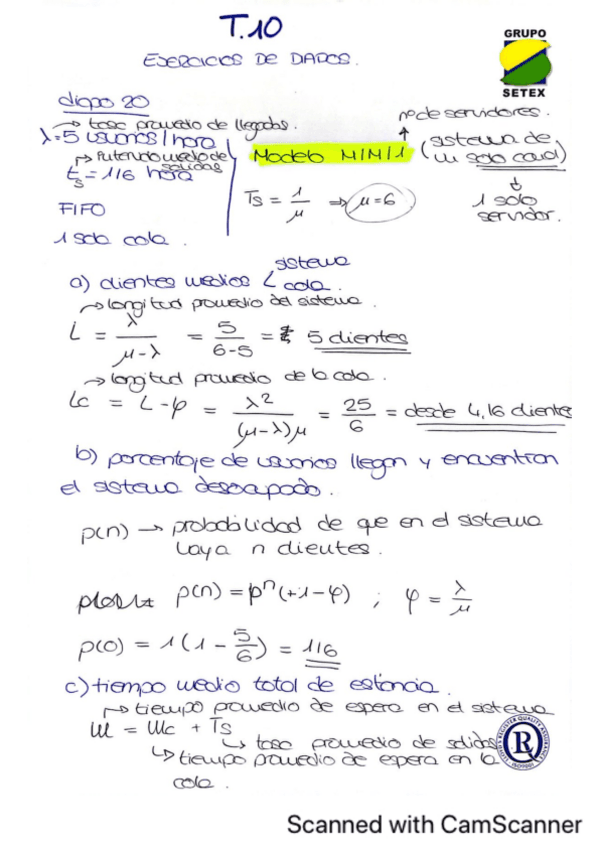 T.10
EJERCICIOS DE DADOS.
GRUPO
SETEX
diapo 20
→ tasa promedio de llegadas.
λ = 5 usuarios / hora
→ promedio de salidas
ts = 1/6 hora
FIFO
1 sola cola.
nº de servidores.
Modelo M/M/1 (sistema de un solo canal)
Ts = 1/μ ⇒ μ = 6
1 solo servidor.
a) clientes medios < sistema cola.
→ longitud promedio del sistema.
L = λ/(μ-λ) = 5/(6-5) = 5 clientes
→ longitud promedio de la cola.
Lc = L - φ = λ²/((μ-λ)μ) = 25/6 = desde 4,16 clientes
b) porcentaje de usuarios llegan y encuentran
el sistema desocupado.
p(n) → probabilidad de que en el sistema
haya n clientes.
p(n) = pⁿ(+1-φ) ; φ = λ/μ
p(0) = 1(1 - 5/6) = 1/6
c) tiempo medio total de estancia.
→ tiempo promedio de espera en el sistema
W = Wc + Ts
↳ tasa promedio de salidas
↳ tiempo promedio de espera en la
cola.
R
Scanned with CamScanner